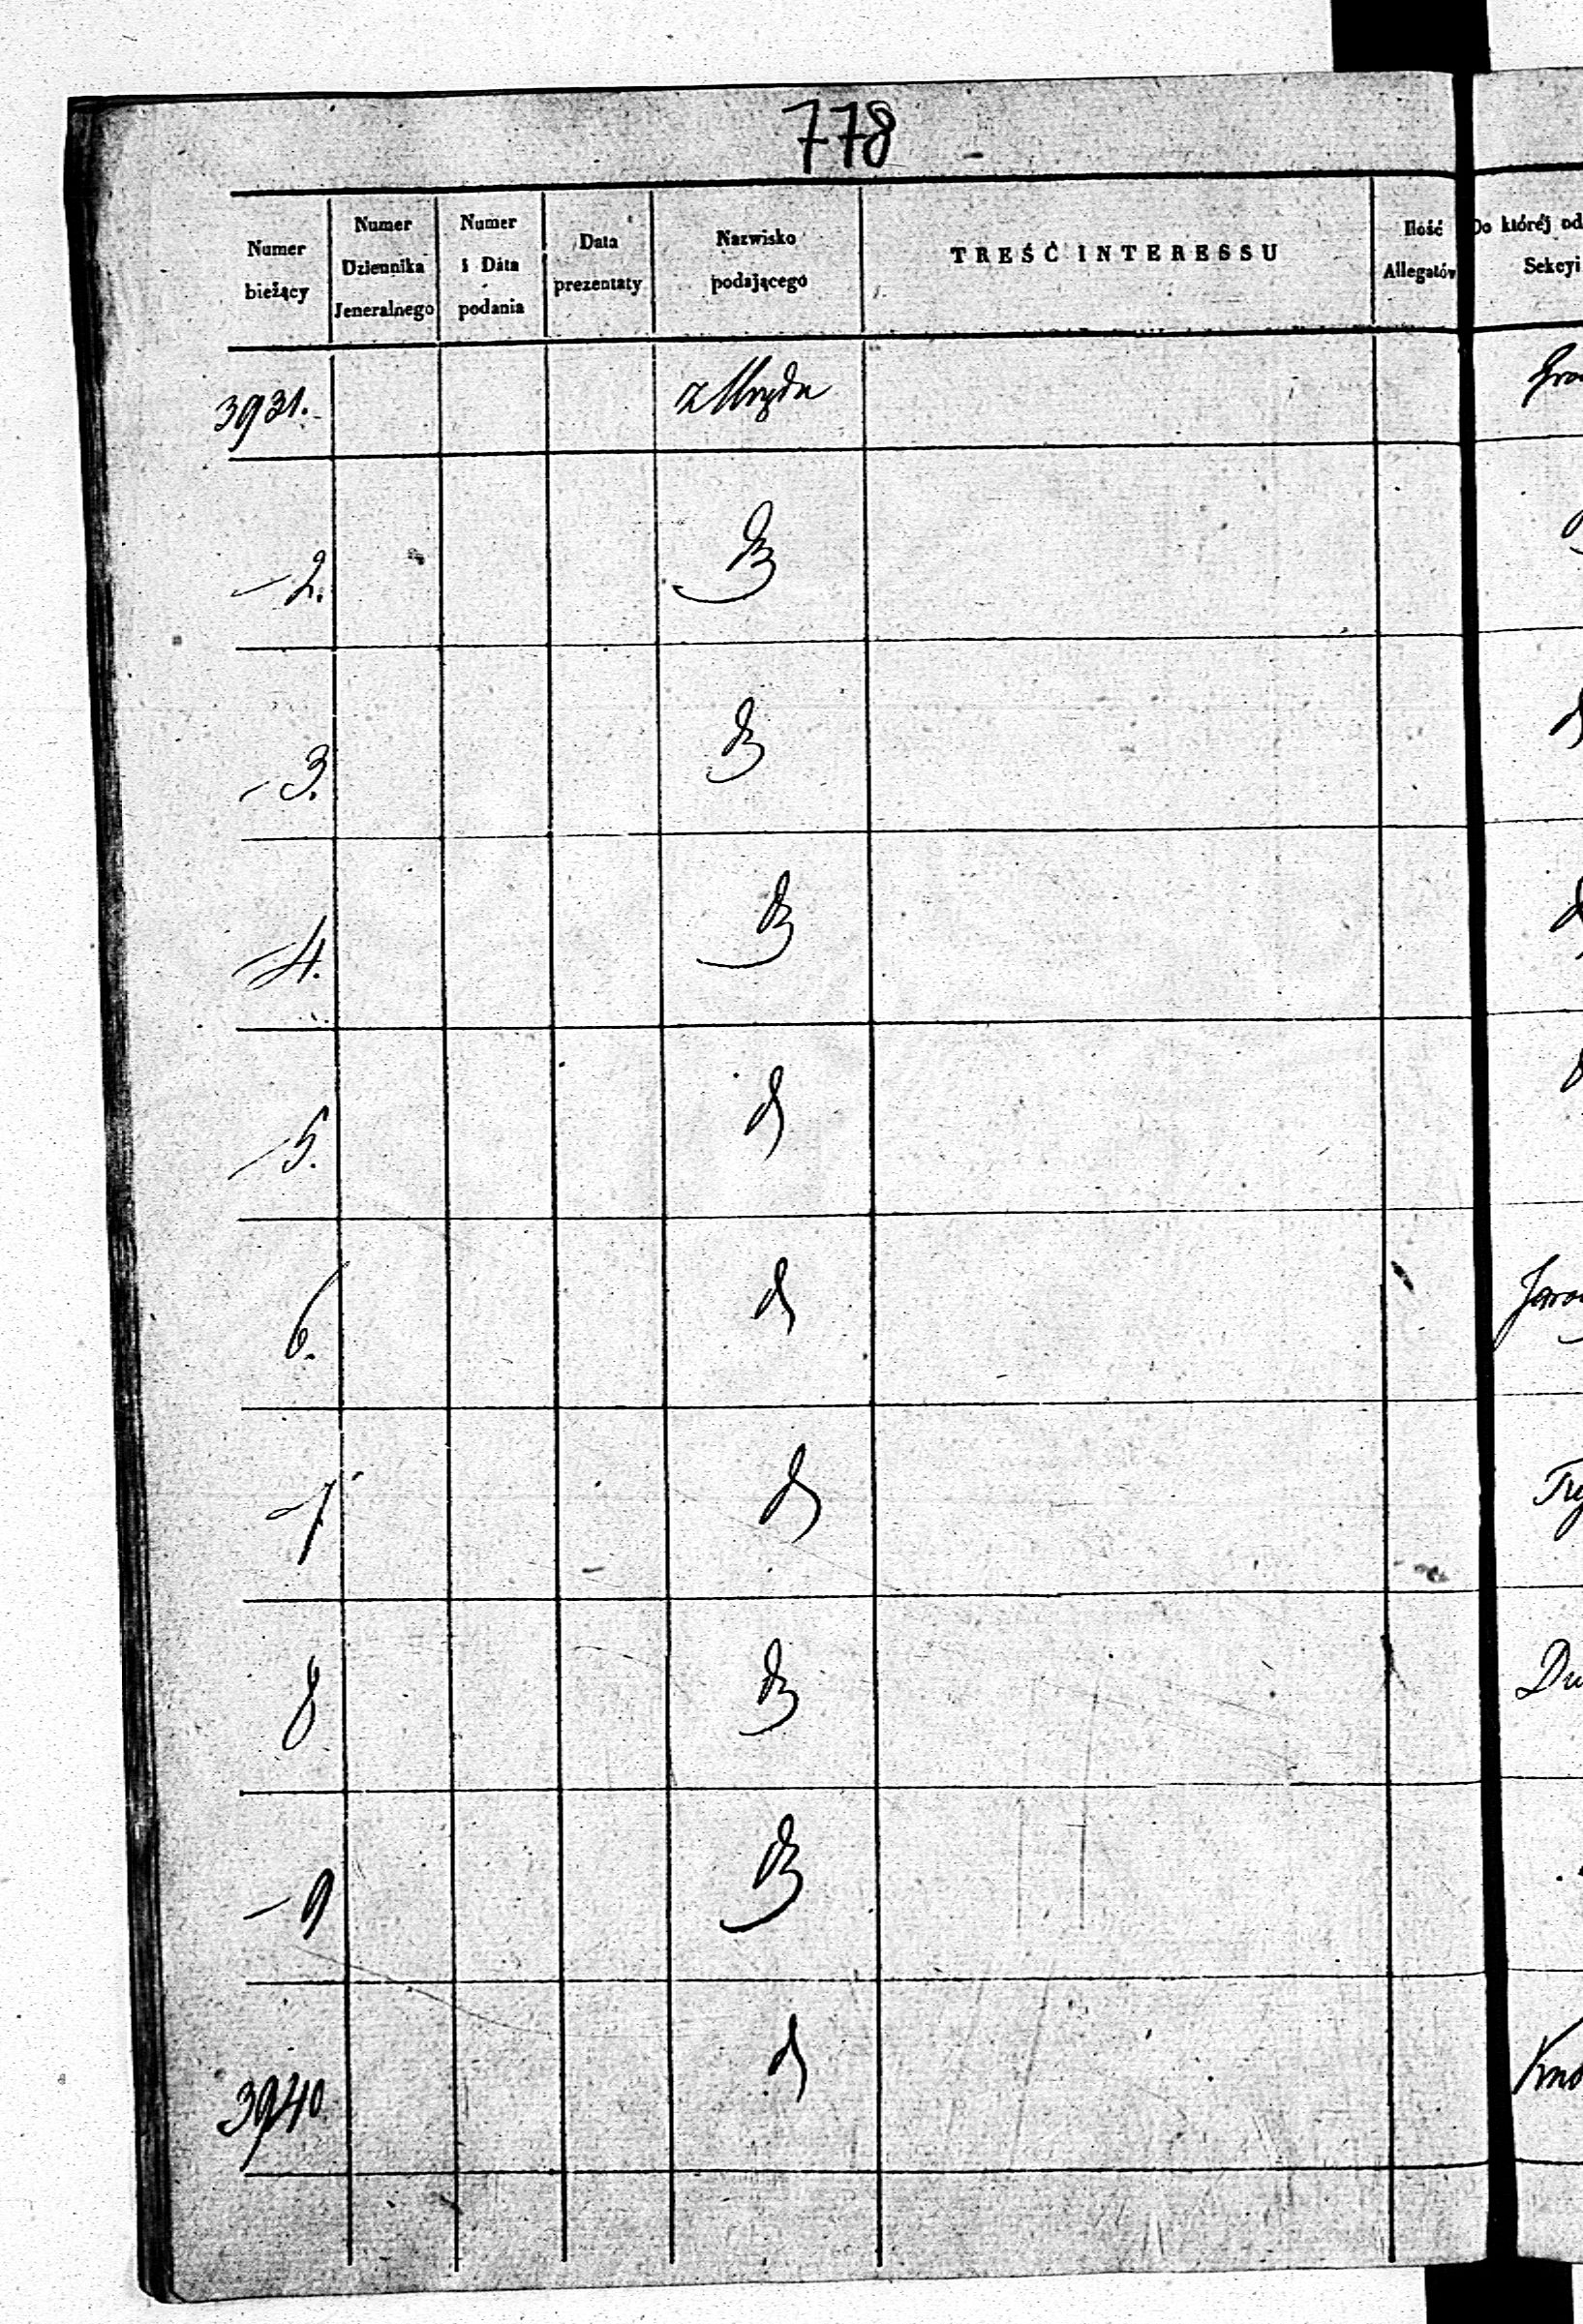 778
Numer bieżący | Numer Dziennika Jeneralnego | Numer i Data podania | Data prezentaty | Nazwisko podającego | TREŚĆ INTERESSU | Ilość Allegatów | Do któréj od Sekcyi
3931. | z Urzędu
- 2. | dto
- 3. | dto
- 4. | dto
- 5. | dto
6. | dto | Jaro
- 7 | dto
8 | dto | Du
- 9 | dto
3940 | dto